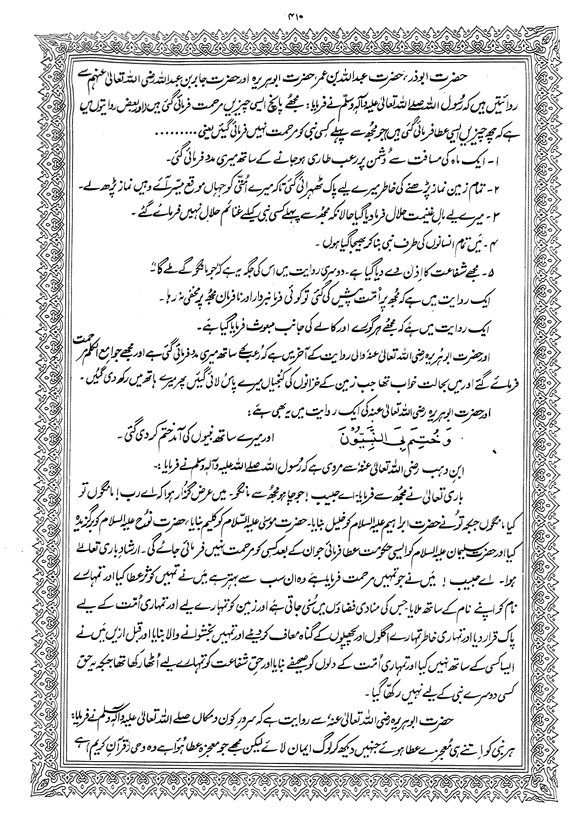 ۴۱۰
حضرت ابوذر، حضرت عبداللہ بن عمر، حضرت ابوہریرہ اور حضرت جابر بن عبداللہ رضی اللہ تعالیٰ عنہم سے
روائتیں ہیں کہ رسول اللہ صلے اللہ تعالیٰ علیہ وآلہ وسلم نے فرمایا: مجھے پانچ ایسی چیزیں مرحمت فرمائی گئی ہیں اور بعض روایتوں میں
ہے کہ چھ چیزیں ایسی عطا فرمائی گئی ہیں جو مجھ سے پہلے کسی نبی کو مرحمت نہیں فرمائی گئیں یعنی .........
۱ - ایک ماہ کی مسافت سے دشمن پر رعب طاری ہو جانے کے ساتھ میری مدد فرمائی گئی۔
۲ - تمام زمین نماز پڑھنے کی خاطر میرے لیے پاک ٹھہرائی گئی تاکہ میرے اُمتی کو جہاں موقع میسر آئے وہیں نماز پڑھ لے۔
۳ - میرے لیے مالِ غنیمت حلال فرما دیا گیا حالانکہ مجھ سے پہلے کسی نبی کیلئے غنائم حلال نہیں فرمائے گئے۔
۴ - میں تمام انسانوں کی طرف نبی بنا کر بھیجا گیا ہوں۔
۵ - مجھے شفاعت کا اِذن دے دیا گیا ہے۔ دوسری روایت میں اس کی جگہ یہ ہے کہ جو مانگو گے ملے گا۔
ایک روایت میں ہے کہ مجھ پر اُمت پیش کی گئی تو کوئی فرمانبردار اور نافرمان مجھ پر مخفی نہ رہا۔
ایک روایت میں ہے کہ مجھے ہر گورے اور کالے کی جانب مبعوث فرمایا گیا ہے۔
اور حضرت ابوہریرہ رضی اللہ تعالیٰ عنہ والی روایت کے آخر میں ہے کہ رعب کے ساتھ میری مدد فرمائی گئی ہے اور مجھے جوامع الکلم مرحمت
فرمائے گئے اور میں بحالتِ خواب تھا جب زمین کے خزانوں کی کنجیاں میرے پاس لائی گئیں پھر میرے ہاتھ میں رکھ دی گئیں۔
اور حضرت ابوہریرہ رضی اللہ تعالیٰ عنہ کی ایک روایت میں یہ بھی ہے:
وَخُتِمَ بِیَ النَّبِیُّوْنَ اور میرے ساتھ نبیوں کی آمد ختم کر دی گئی۔
ابن وہب رضی اللہ تعالیٰ عنہ سے مروی ہے کہ رسول اللہ صلے اللہ علیہ وآلہ وسلم نے فرمایا :
باری تعالیٰ نے مجھ سے فرمایا: اے حبیب! جو چاہو مجھ سے مانگو۔ میں عرض گزار ہوا کہ اے رب! مانگوں تو
کیا مانگوں جبکہ تو نے حضرت ابراہیم علیہ السلام کو خلیل بنایا، حضرت موسیٰ علیہ السلام کو کلیم بنایا، حضرت نوح علیہ السلام کو برگزیدہ
کیا اور حضرت سلیمان علیہ السلام کو ایسی حکومت عطا فرمائی جو ان کے بعد کسی کو مرحمت نہیں فرمائی جائے گی۔ ارشادِ باری تعالےٰ
ہوا۔ اے حبیب! میں نے جو تمہیں مرحمت فرمایا ہے وہ ان سب سے بہتر ہے میں نے تمہیں کوثر عطا کیا اور تمہارے
نام کو اپنے نام کے ساتھ ملایا جس کی منادی فضاؤں میں سُنی جاتی ہے اور زمین کو تمہارے لیے اور تمہاری اُمت کے لیے
پاک قرار دیا اور تمہاری خاطر تمہارے اگلوں اور پچھلوں کے گناہ معاف کر دیئے اور تمہیں بخشوانے والا بنایا اور قبل ازیں میں نے
ایسا کسی کے ساتھ نہیں کیا اور تمہاری اُمت کے دلوں کو صحیفے بنایا اور حقِ شفاعت کو تمہارے لیے اُٹھا رکھا تھا جبکہ یہ حق
کسی دوسرے نبی کے لیے نہیں رکھا گیا۔
حضرت ابوہریرہ رضی اللہ تعالیٰ عنہ سے روایت ہے کہ سرورِ کون و مکاں صلے اللہ تعالیٰ علیہ وآلہ وسلم نے فرمایا:
ہر نبی کو اتنے ہی معجزے عطا ہوئے جنہیں دیکھ کر لوگ ایمان لائے لیکن مجھے جو معجزہ عطا ہوا ہے وہ وحی (قرآن کریم) ہے